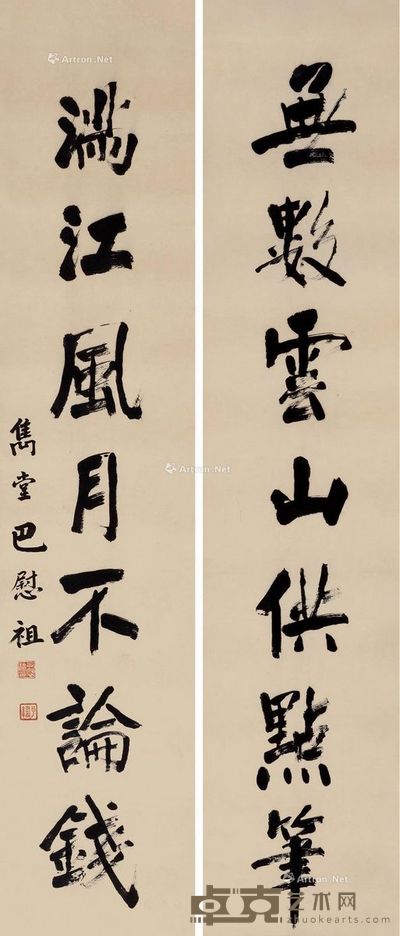 無數雲山供點筆
滿江風月不論錢
雋堂巴慰祖
Artron.Net
Artron.Net
Artron.Net
Artron.Net
卓克艺术网
zhuokearts.com